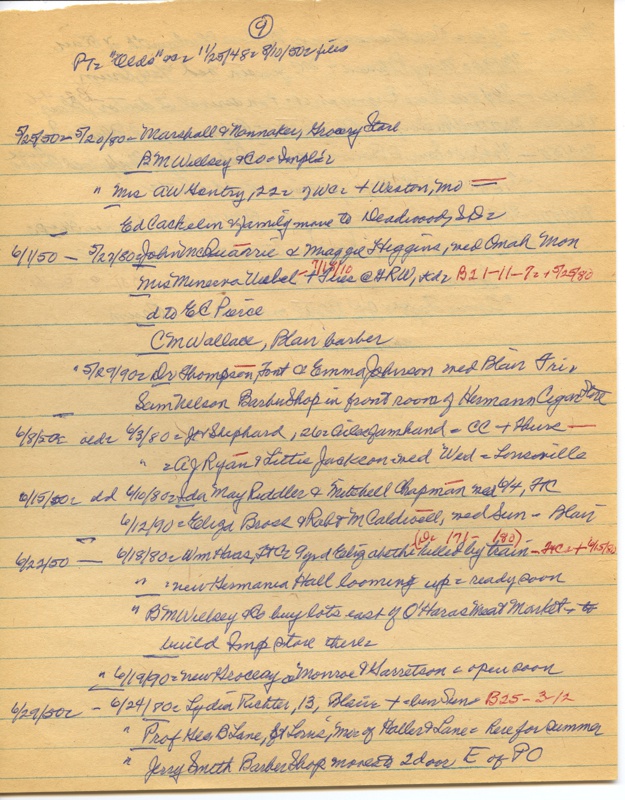 9
PT= "Olds" 11/25/48 = 8/10/50 = files
5/25/50 = 5/20/80 = Marshall & Nonnaker, Grocery Store
BM Willsey & Co = Impl'r
" Mrs AW Gentry, 22 = + Weston, Mo
Ed Cachelin & family move to Deadwood, SD =
6/1/50 - 5/27/80 = John McQuarrie & Maggie Higgins, wed Omah Mon
Mrs Minerva - 7/19/10 + @ HRW, B 21-11-7 = + 5/25/80
d to EC Pierce
CM Wallace, Blair barber
" 5/29/90 = Dr Thompson, Font & Emma Johnson wed Blair Fri,
Sam Nelson Barber Shop in front room of Hermann Cigar Store
6/8/50 = 6/3/80 = Shephard, 26 = = CC +
" = AJ Ryan & Littie Jackson = wed Wed =
6/15/50 = dd 6/10/80 = Ida May Riddler & Mitchell Chapman wed 6/4, HC
6/12/90 = Eliza Brock & Rob't McCaldwell, wed Sun = Blair
(D = 171 - 180)
6/22/50 - 6/18/80 = Wm Haas, 9yrd Elizabeth killed by train - + 6/15/80
" = new Hermania Hall looming up = ready soon
" BM Willsey & Co buy lots east of O'Haras Meat Market = to
build Imp store there =
" 6/19/90 = new Grocery = Monroe & Garretson = open soon
6/29/50 = - 6/24/80 = Lydia Richter, 13, Blair = + Sun = B25-3-12
" Prof Geo B Lane, St Louis, Mer of Haller & Lane = here for summer
" Jerry Smith Barber Shop moves to 2 door E of PO